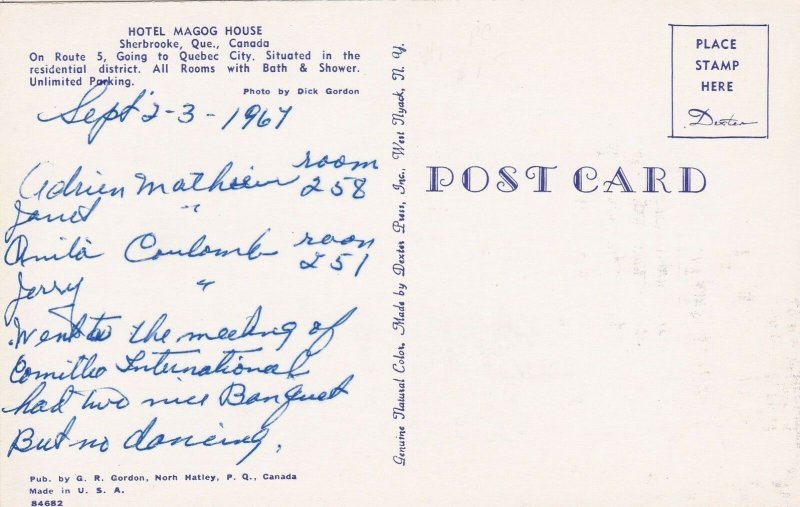 HOTEL MAGOG HOUSE
Sherbrooke, Que., Canada
On Route 5, Going to Quebec City. Situated in the
residential district. All Rooms with Bath & Shower.
Unlimited Parking.
Photo by Dick Gordon
Sept 2-3-1967
Adrien Mathieu room 258
Janet "
Anita Coulomb room 251
Jerry "
Went to the meeting of
Comitte International
had two nice Banquet
But no dancing.
Pub. by G. R. Gordon, Norh Hatley, P. Q., Canada
Made in U. S. A.
84682
Genuine Natural Color, Made by Dexter Press, Inc., West Nyack, N. Y.
POST CARD
PLACE
STAMP
HERE
Dexter